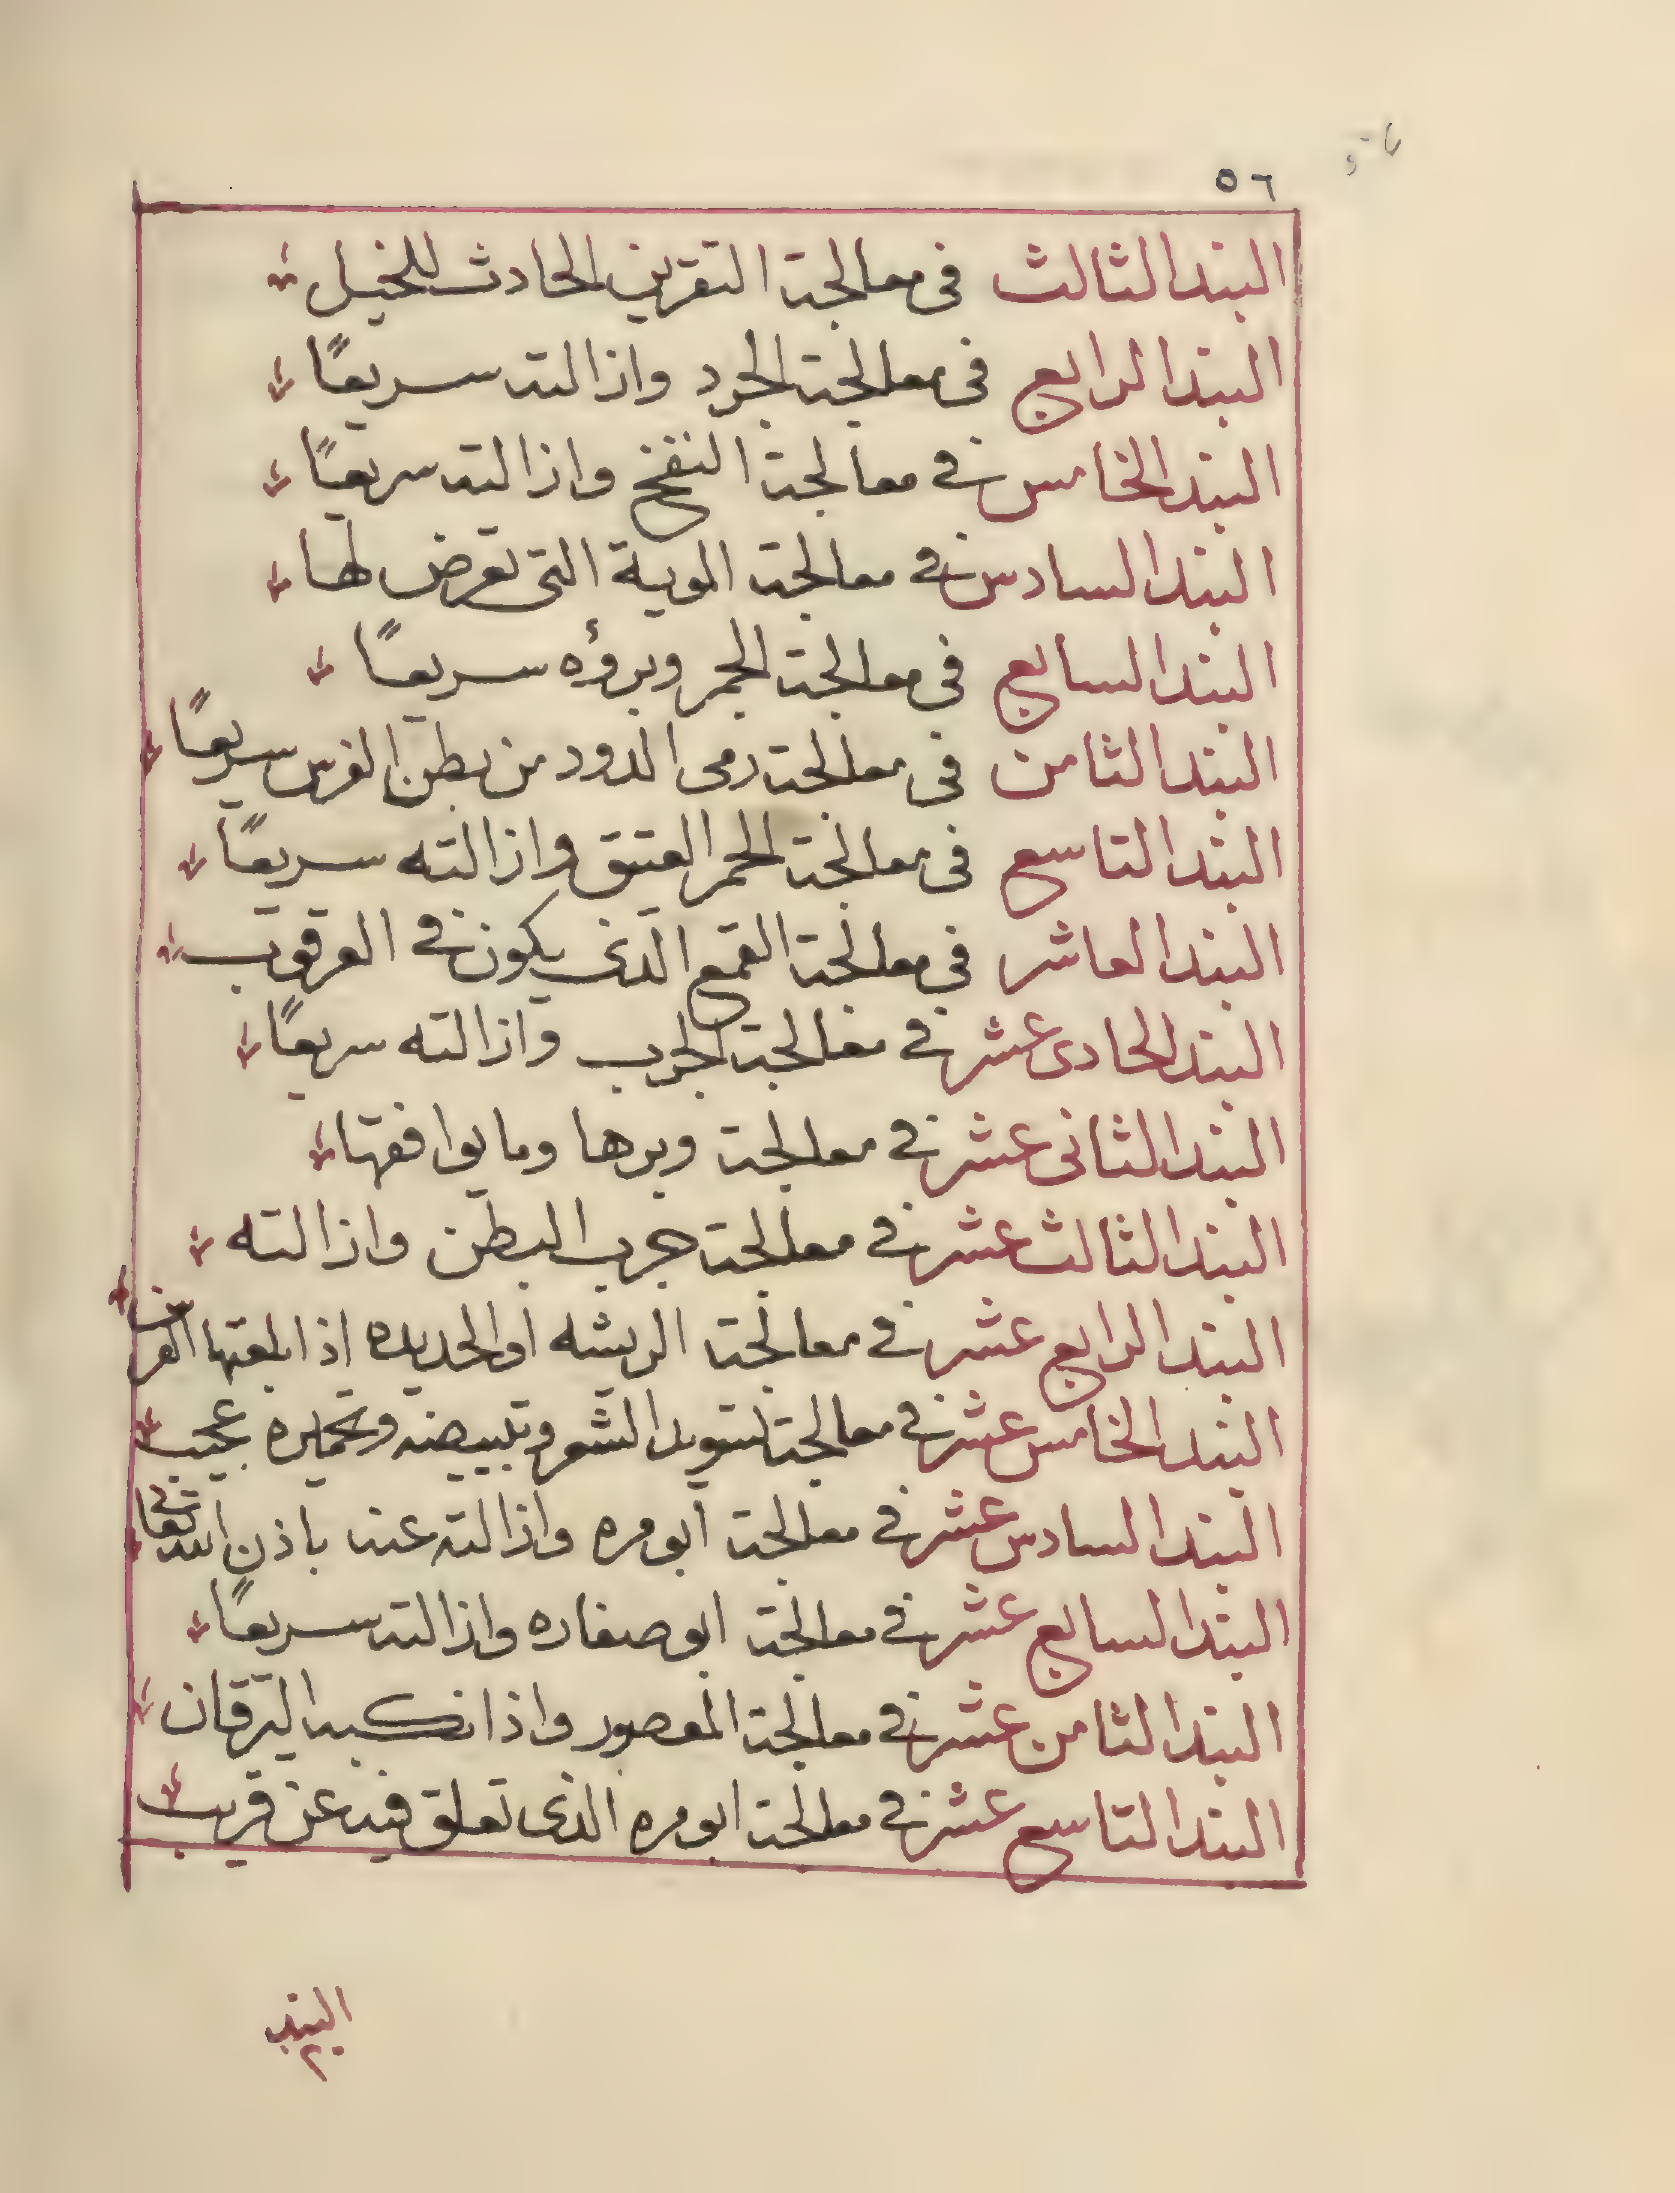 ٥٦
البند الثالث في معالجة التقرين الحادث للخيل
البند الرابع في معالجة الجرد وازالته سريعًا
البند الخامس في معالجة النفخ وازالته سريعًا
البند السادس في معالجة الموية التي تعرض لها
البند السابع في معالجة الحمر وبرؤه سريعًا
البند الثامن في معالجة رمى الدود من بطن الفرس سريعًا
البند التاسع في معالجة الحمر العتيق وازالته سريعًا
البند العاشر في معالجة القمع الذي يكون في العرقوب
البند الحادى عشر في معالجة الجرب وازالته سريعًا
البند الثانى عشر في معالجة وبرها وما يوافقها
البند الثالث عشر في معالجة جرب البطن وازالته
البند الرابع عشر في معالجة الريشه او الحديده اذا بلعتها الفرس
البند الخامس عشر في معالجة تسويد الشعر وتبييضه وتحميره عجيب
البند السادس عشر في معالجة ابو مره وازالته عنه باذن الله تعا
البند السابع عشر في معالجة ابو صفاره وازالته سريعًا
البند الثامن عشر في معالجة المعصور واذا نكبه اليرقان
البند التاسع عشر في معالجة ابو مره الذى تعلق فيه عن قريب
البند
٢٠